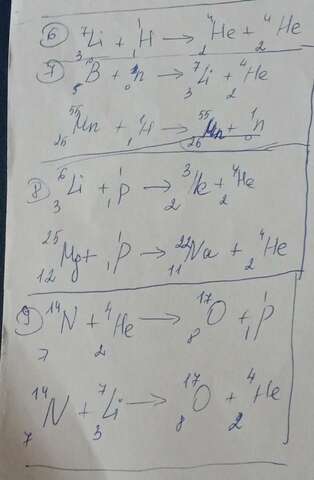 ⑥ ⁷₃Li + ¹₁H → ⁴₂He + ⁴₂He
⑦ ¹⁰₅B + ¹₀n → ⁷₃Li + ⁴₂He
⁵⁵₂₅Mn + ¹₁H → ⁵⁵₂₆Mn + ¹₀n
⑧ ⁶₃Li + ¹₁p → ³₂He + ⁴₂He
²⁵₁₂Mg + ¹₁p → ²²₁₁Na + ⁴₂He
⑨ ¹⁴₇N + ⁴₂He → ¹⁷₈O + ¹₁p
¹⁴₇N + ⁷₃Li → ¹⁷₈O + ⁴₂He